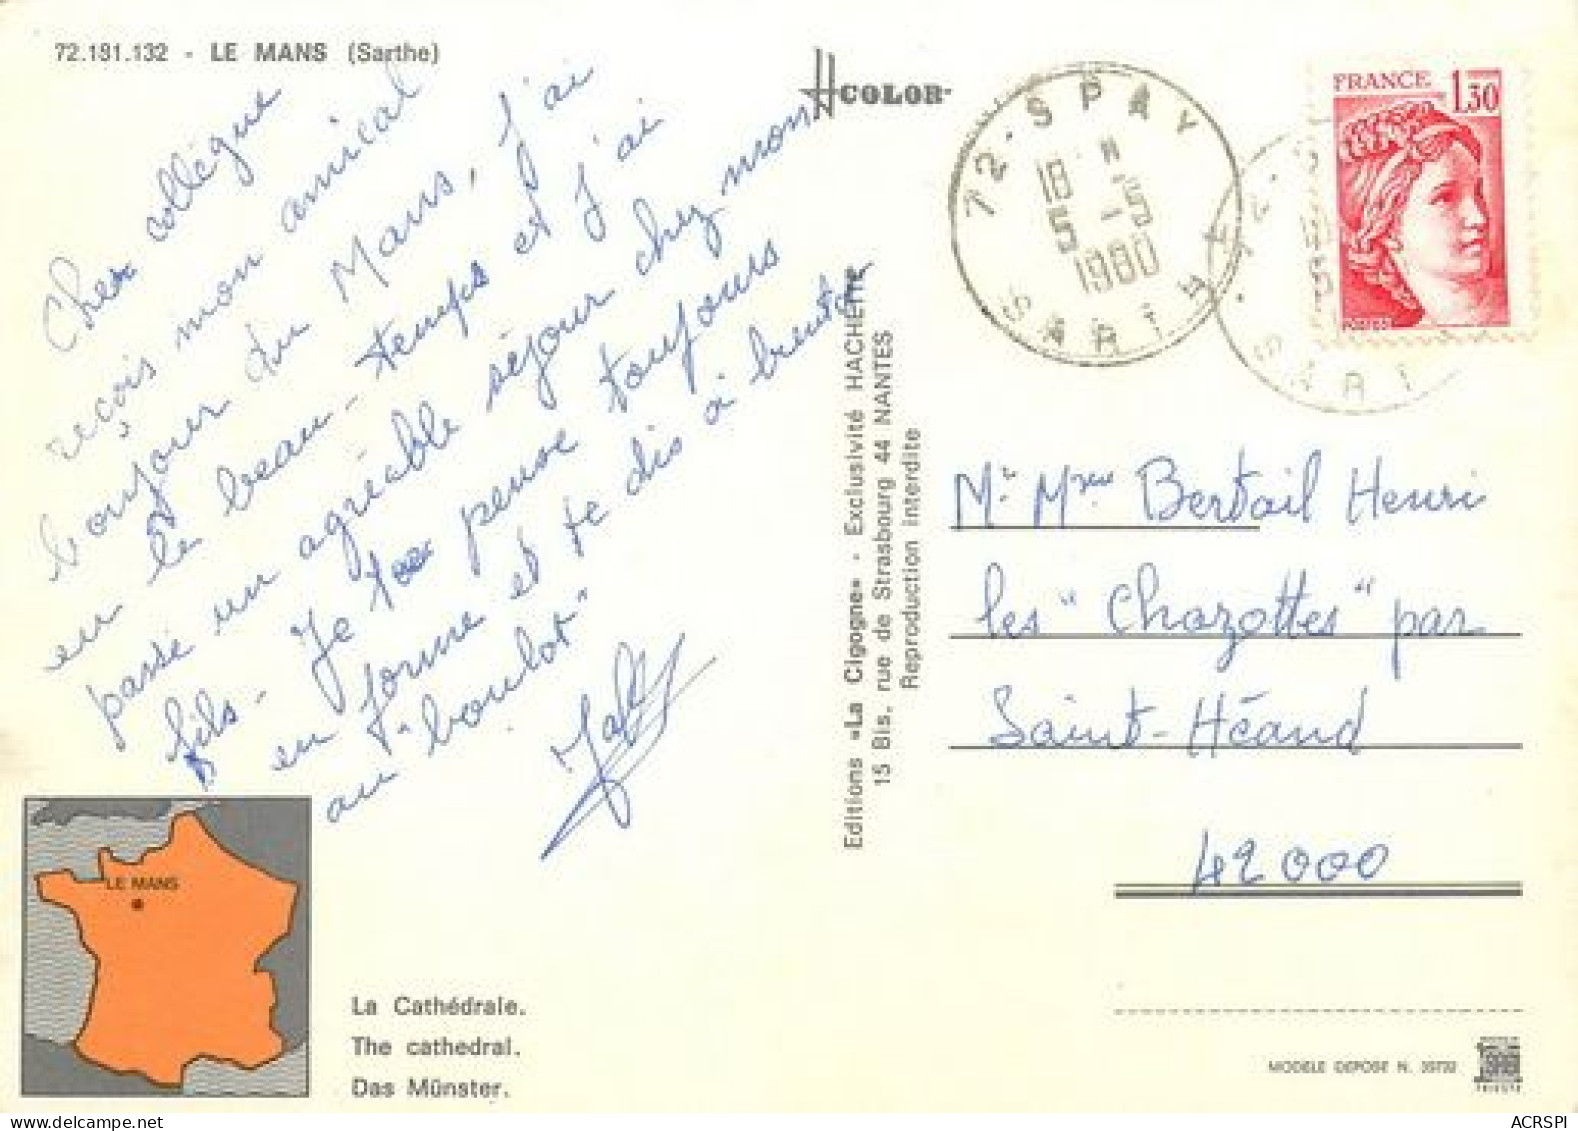 72.181.132 - LE MANS (Sarthe)
Cher collègue
reçois mon amical
bonjour du Mans, j'ai
eu le beau-temps et j'ai
passé un agréable séjour chez mon
fils - Je pense toujours
en forme et te dis à
au "boulot"
COLOR
72. SPAY
18 H
5 - 5
1980
SARTHE
FRANCE 1,30
POSTES
Editions «La Cigogne» - Exclusivité HACHETTE
15 Bis, rue de Strasbourg 44 NANTES
Reproduction interdite
Mr Mme Bertail Henri
les "Chazottes" par
Saint-Héand
42000
LE MANS
La Cathédrale.
The cathedral.
Das Münster.
MODELE DEPOSE N.
ACRSPI